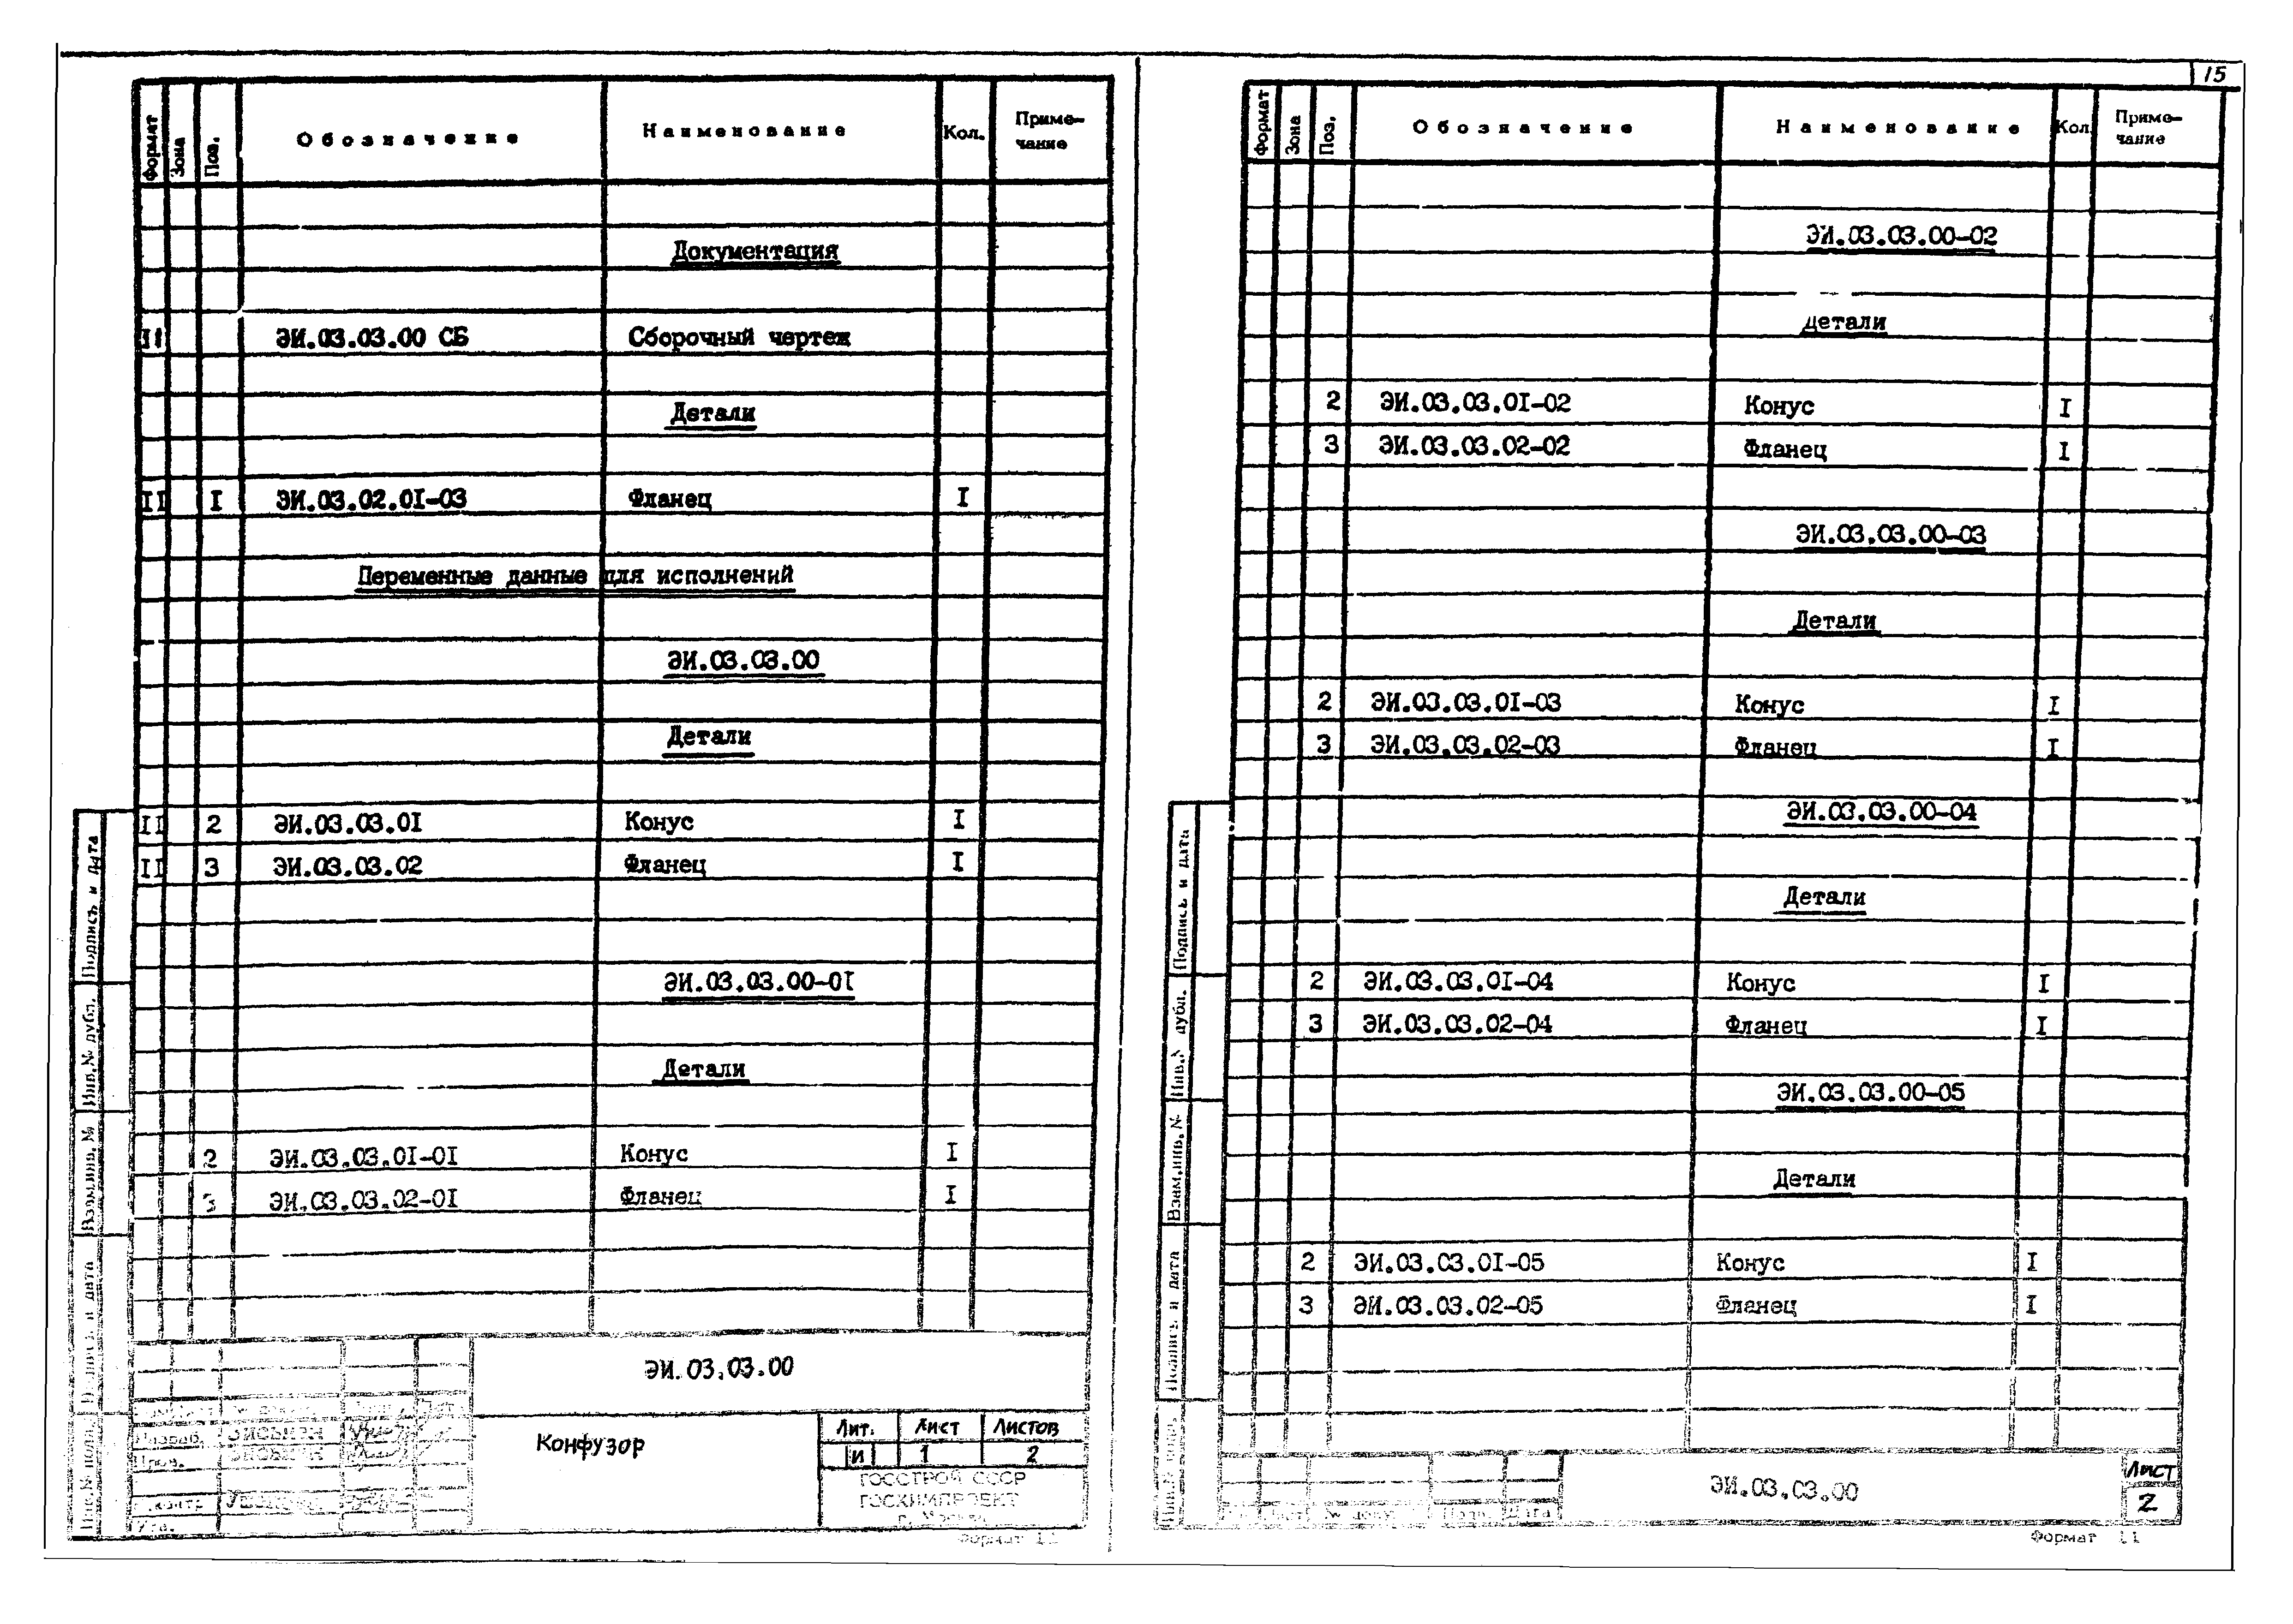 15
Формат Зона Поз. Обозначение Наименование Кол. Приме-
чание
Документация
II ЭИ.03.03.00 СБ Сборочный чертеж
Детали
II I ЭИ.03.02.0I-03 Фланец I
Переменные данные для исполнений
ЭИ.03.03.00
Детали
II 2 ЭИ.03.03.0I Конус I
II 3 ЭИ.03.03.02 Фланец I
ЭИ.03.03.00-0I
Детали
2 ЭИ.03.03.0I-0I Конус I
3 ЭИ.03.03.02-0I Фланец I
Подпись и дата
Инв.№ дубл.
Взам.инв.№
ЭИ.03.03.00
Конфузор
Лит. Лист Листов
И 1 2
ГОССТРОЙ СССР
ГОСХИМПРОЕКТ
г. Москва
Разраб.
Пров.
Утв.
Формат 11
Формат Зона Поз. Обозначение Наименование Кол. Приме-
чание
ЭИ.03.03.00-02
Детали
2 ЭИ.03.03.0I-02 Конус I
3 ЭИ.03.03.02-02 Фланец I
ЭИ.03.03.00-03
Детали
2 ЭИ.03.03.0I-03 Конус I
3 ЭИ.03.03.02-03 Фланец I
ЭИ.03.03.00-04
Детали
2 ЭИ.03.03.0I-04 Конус I
3 ЭИ.03.03.02-04 Фланец I
ЭИ.03.03.00-05
Детали
2 ЭИ.03.03.0I-05 Конус I
3 ЭИ.03.03.02-05 Фланец I
Подпись и дата
Инв.№ дубл.
Взам.инв.№
Подпись и дата
ЭИ.03.03.00
Лист
2
№ докум. Подп. Дата
Формат 11